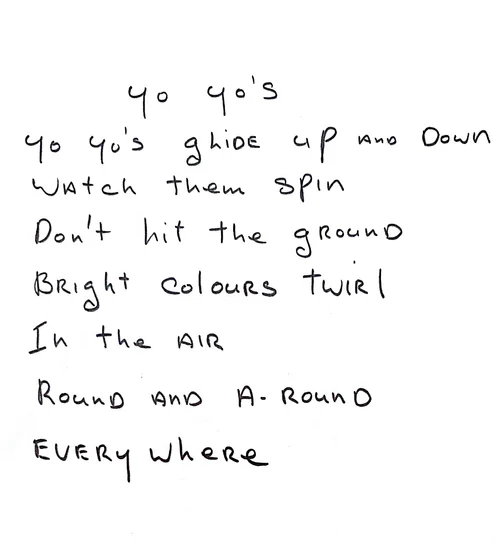 Yo Yo's
Yo Yo's glide up and Down
Watch them spin
Don't hit the ground
Bright colours twirl
In the air
Round and A-round
Every where